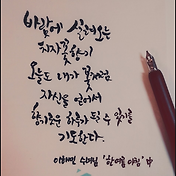 바람에 실려오는
치자꽃향기
오늘도 내가 꽃처럼
자신을 얻어서
향기로운 하루가 될 수 있기를
기도한다.
이해인 수녀님 '한여름 아침' 中